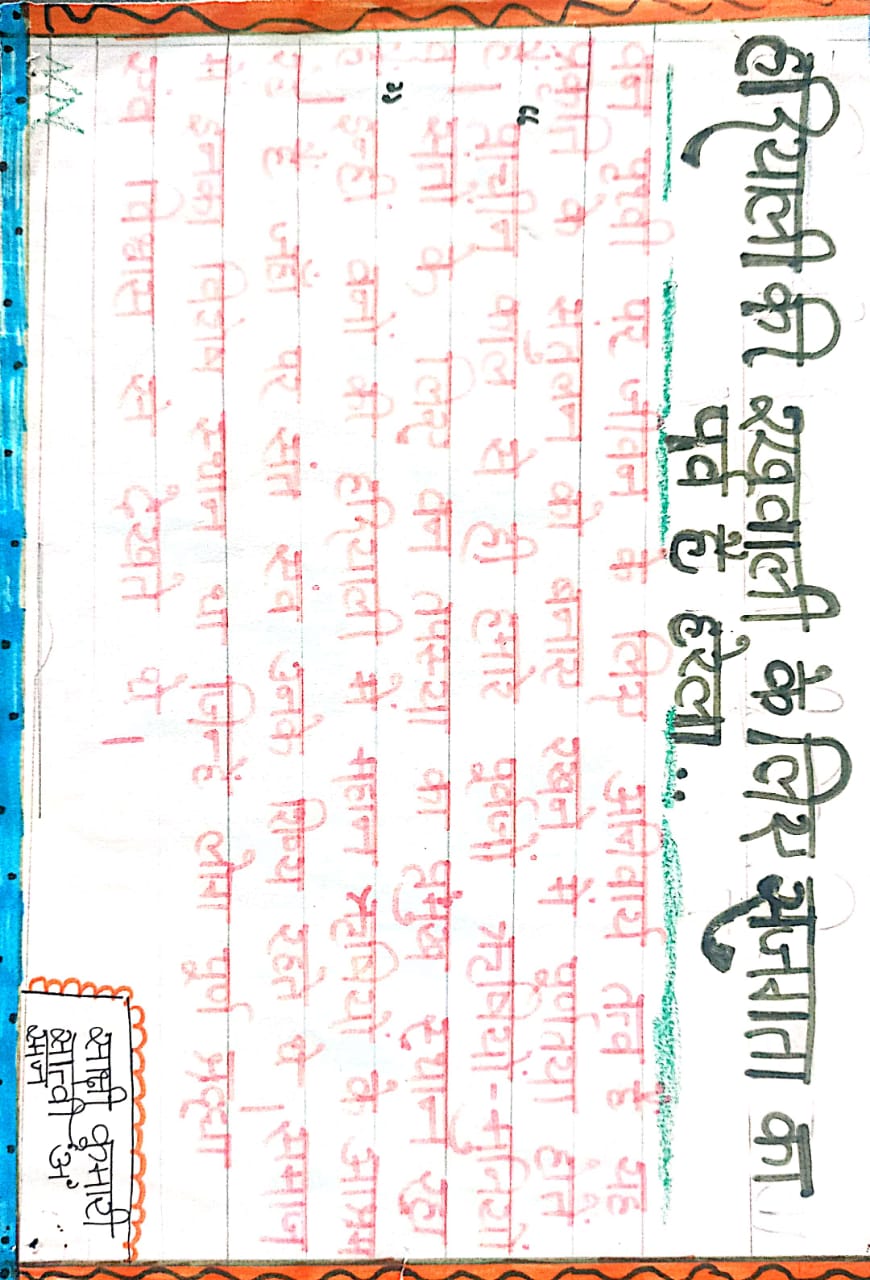 हरियाली की रखवाली के लिए सृजगता का
पर्व है हरेला..
वन पृथ्वी पर जीवन के लिए अनिवार्य तत्व है यह
प्रकृति के संतुलन को बनाए रखने में पूर्णतया होते
है। "प्राचीन काल से ही हमारे पूर्वजों ऋषियो-मुनियों
व संतो के लिए वन तपस्या का प्रमुख स्थान रहा
है।" इन्ही वनों की हरियाली में महान ऋषियों के आश्रम
रहे हैं जहाँ पर संत एवं उनके शिष्य रहते थे। समाज
में इनका विशेष स्थान था जिन्हें लोग पूर्ण श्रद्धा
एवं विश्वास से देखते थे।
साक्षी कुमारी
सातवी 'अ'